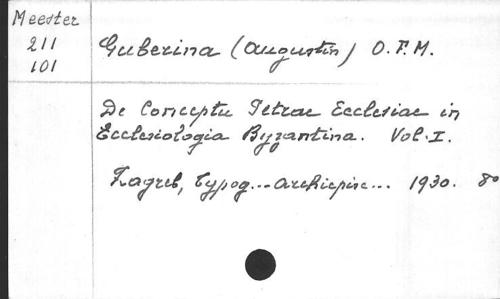 Meester
211
101
Guberina (Augustin) O.F.M.
De Conceptu Petrae Ecclesiae in
Ecclesiologia Byzantina. Vol. I.
Zagreb, Typog... archiepisc... 1930. 8º